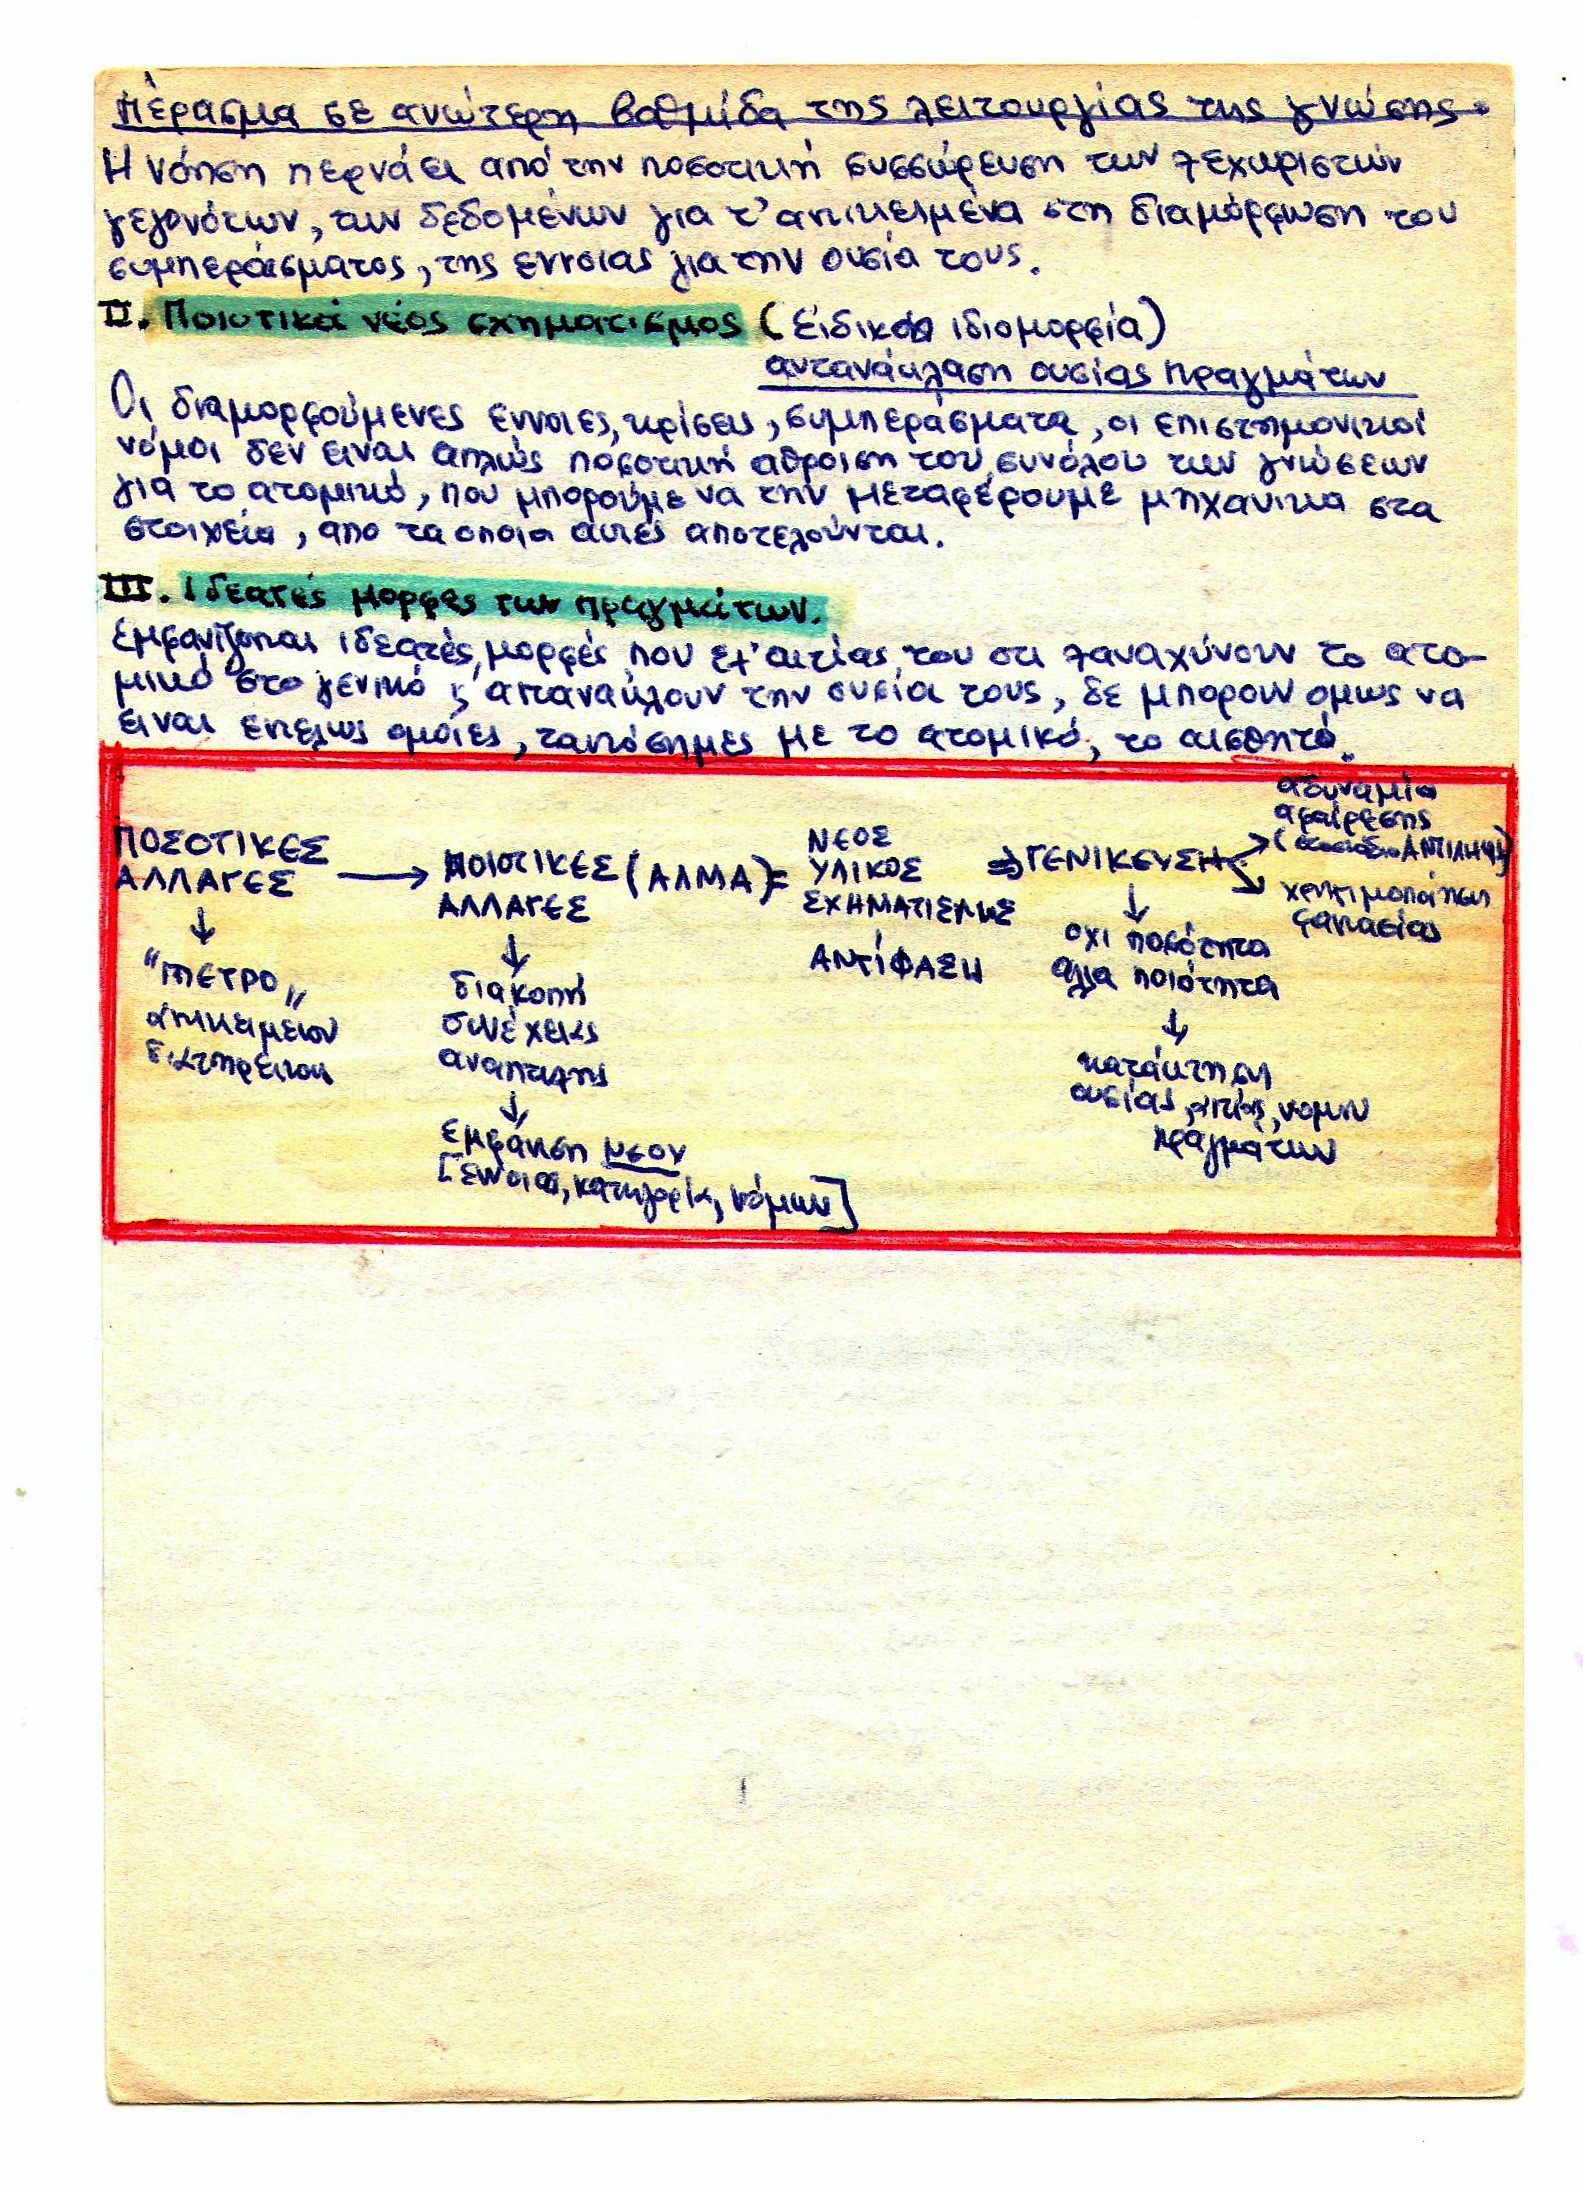 Πέρασμα σε ανώτερη βαθμίδα της λειτουργίας της γνώσης.
Η νόηση περνάει από την ποσοτική συσσώρευση των ξεχωριστών
γεγονότων, των δεδομένων για τ' αντικειμένα στη διαμόρφωση του
συμπεράσματος, της εννοιας για την ουσία τους.
II. Ποιοτικά νέος σχηματισμος (Ειδικη ιδιομορφία)
αντανάκλαση ουσίας πραγμάτων
Οι διαμορφούμενες εννοιες, κρίσεις, συμπεράσματα, οι επιστημονικοί
νόμοι δεν ειναι απλώς ποσοτική αθροιση του συνόλου των γνώσεων
για το ατομικό, που μπορούμε να την μεταφέρουμε μηχανικα στα
στοιχεία, απο τα οποια αυτές αποτελούνται.
III. Ιδεατές μορφες των πραγμάτων.
Εμφανίζονται ιδεατές μορφές που εξ' αιτίας του οτι ξαναχύνουν το ατο-
μικό στο γενικό ϗ αντανακλουν την ουσία τους, δε μπορουν ομως να
ειναι εντελως ομοιες, ταυτόσημες με το ατομικό, το αισθητό.
ΠΟΣΟΤΙΚΕΣ ΑΛΛΑΓΕΣ → ΠΟΙΟΤΙΚΕΣ ΑΛΛΑΓΕΣ (ΑΛΜΑ) = ΝΕΟΣ ΥΛΙΚΟΣ ΣΧΗΜΑΤΙΣΜΟΣ ⇒ ΓΕΝΙΚΕΥΣΗ
↓
"ΜΕΤΡΟ„
αντικειμενου
διατηρειται
↓
διακοπή
συνέχειας
αναπτυξης
↓
Εμφάνιση νεου
[Εννοιας, κατηγορίας, νόμων]
ΑΝΤΙΦΑΣΗ
↓
οχι ποσότητα
αλλα ποιότητα
↓
κατάκτηση
ουσίας, αιτίας, νομων
πραγμάτων
αδυναμία
αφαίρεσης
ΑΝΤΙΛΗΨΗ)
χρησιμοποίηση
φαντασίας